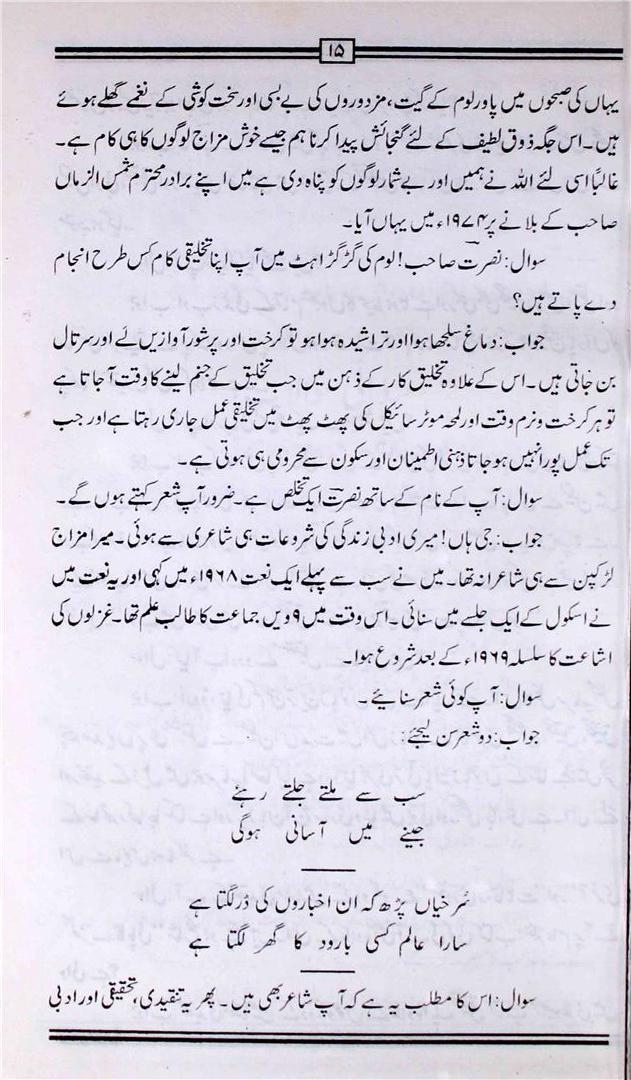 ۱۵
یہاں کی صبحوں میں پاور لوم کے گیت، مزدوروں کی بے بسی اور سخت کوشی کے نغمے گھلے ہوئے
ہیں۔ اس جگہ ذوق لطیف کے لئے گنجائش پیدا کرنا ہم جیسے خوش مزاج لوگوں کا ہی کام ہے۔
غالباً اسی لئے اللہ نے ہمیں اور بے شمار لوگوں کو پناہ دی ہے میں اپنے برادر محترم شمس الزماں
صاحب کے بلانے پر ۱۹۷۴ء میں یہاں آیا۔
سوال: نصرت صاحب! لوم کی گڑگڑاہٹ میں آپ اپنا تخلیقی کام کس طرح انجام
دے پاتے ہیں؟
جواب: دماغ سلجھا ہوا اور تراشیدہ ہوا ہو تو کرخت اور پر شور آوازیں لے اور سر تال
بن جاتی ہیں۔ اس کے علاوہ تخلیق کار کے ذہن میں جب تخلیق کے جنم لینے کا وقت آجاتا ہے
تو ہر کرخت و نرم وقت اور لمحہ موٹر سائیکل کی پھٹ پھٹ میں تخلیقی عمل جاری رہتا ہے اور جب
تک عمل پورا نہیں ہو جاتا ذہنی اطمینان اور سکون سے محرومی ہی ہوتی ہے۔
سوال: آپ کے نام کے ساتھ نصرت ایک تخلص ہے۔ ضرور آپ شعر کہتے ہوں گے۔
جواب: جی ہاں! میری ادبی زندگی کی شروعات ہی شاعری سے ہوئی۔ میرا مزاج
لڑکپن سے ہی شاعرانہ تھا۔ میں نے سب سے پہلے ایک نعت ۱۹۶۸ء میں کہی اور یہ نعت میں
نے اسکول کے ایک جلسے میں سنائی۔ اس وقت میں ۹ ویں جماعت کا طالب علم تھا۔ غزلوں کی
اشاعت کا سلسلہ ۱۹۶۹ء کے بعد شروع ہوا۔
سوال: آپ کوئی شعر سنائیے۔
جواب: دو شعر سن لیجئے:
سب سے ملتے جلتے رہئے
جینے میں آسانی ہوگی
سُرخیاں پڑھ کہ ان اخباروں کی ڈر لگتا ہے
سارا عالم کسی بارود کا گھر لگتا ہے
سوال: اس کا مطلب یہ ہے کہ آپ شاعر بھی ہیں۔ پھر یہ تنقیدی، تحقیقی اور ادبی